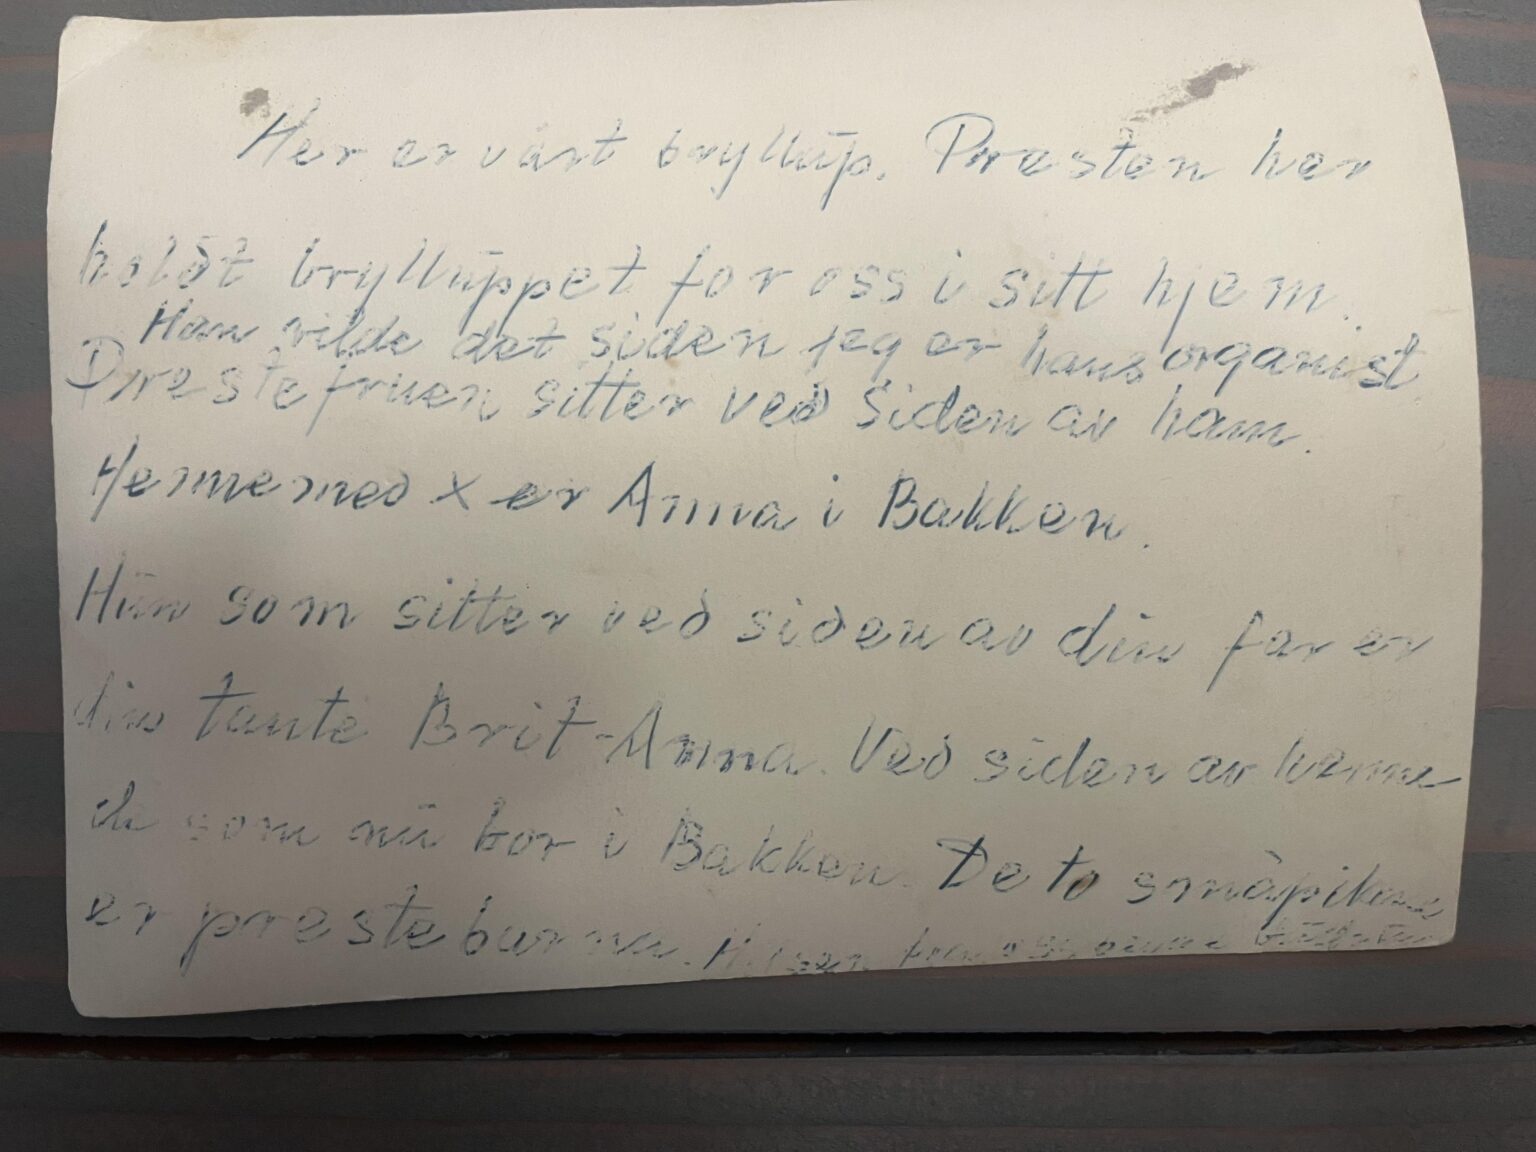 Her er vårt bryllup. Presten her
holdt bryllüppet for oss i sitt hjem.
Han vilde det siden jeg er hans organist
Prestefruen sitter ved siden av ham.
Henne med x er Anna i Bakken.
Hün som sitter ved siden av din far er
din tante Brit-Anna. Ved siden av henne
de som nü bor i Bakken. De to småpikene
er prestebarna. Hilsen fra oss